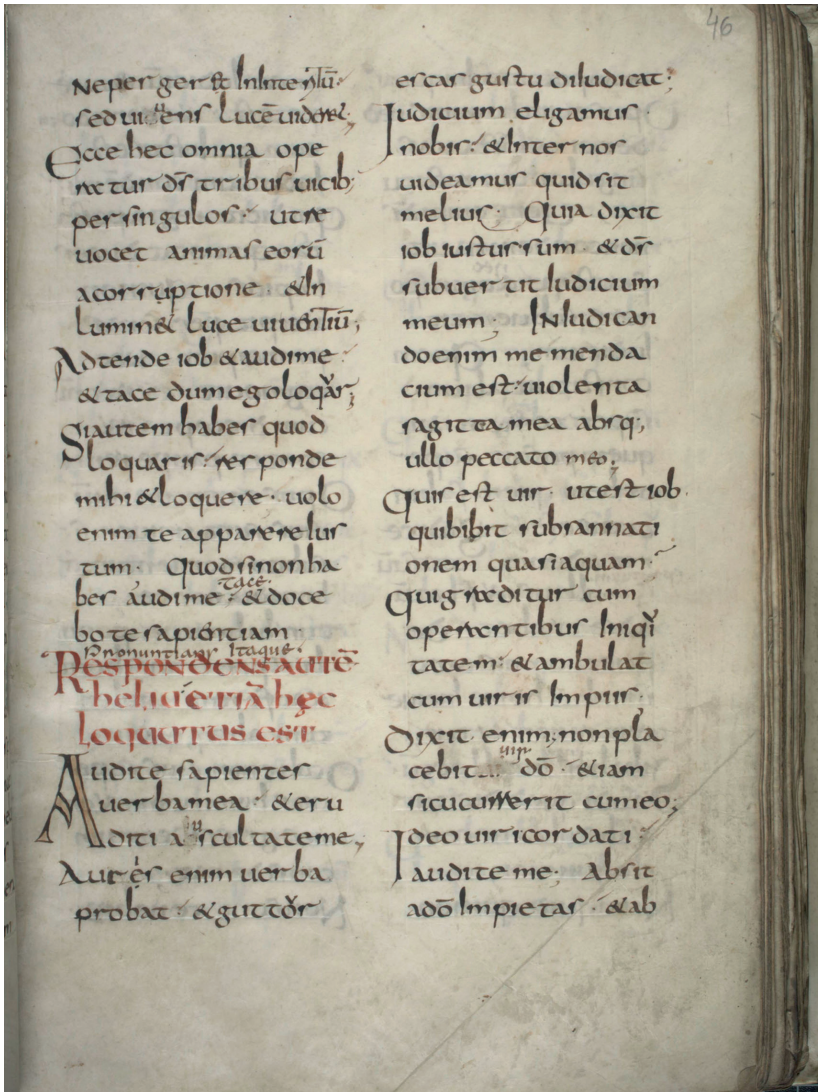 46
ne pergeret In Interitū·
sed uiuens lucē uideret;
Ecce hec omnia ope
ratur dſ tribus uicib;
per singulos· ut re
uocet animas eorū
a corruptione· & In
luminet luce uiuentiū;
Adtende iob & audi me·
& tace dum ego loquar;
Si autem habes quod
loquaris· responde
mihi & loquere· uolo
enim te apparere Ius
tum· Quod si non ha
tace·
bes audi me· & doce
bo te sapientiam·
Pronuntians Itaque·
Respondens autē
heliu etiā hęc
loquutus est
Audite sapientes
uerba mea· & eru
diti auscultate me,
Aures enim uerba
probat· & guttur
escas gustu diIudicat;
Iudicium eligamus
nobis· & Inter nos
uideamus quid sit
melius· Quia dixit
iob iustus sum· & dſ
subuertit Iudicium
meum; In Iudican
do enim me menda
cium est· uiolenta
sagitta mea absq;
ullo peccato meo;
Quis est uir· ut est iob·
qui bibit subsannati
onem quasi aquam·
Qui graditur cum
operantibus Iniqui
tatem· & ambulat
cum uiris Impiis·
Dixit enim; non pla
uir
cebit dō· & iam
si cucurrerit cum eo;
Ideo uiri cordati·
audite me; Absit
a dō Impietas· & ab